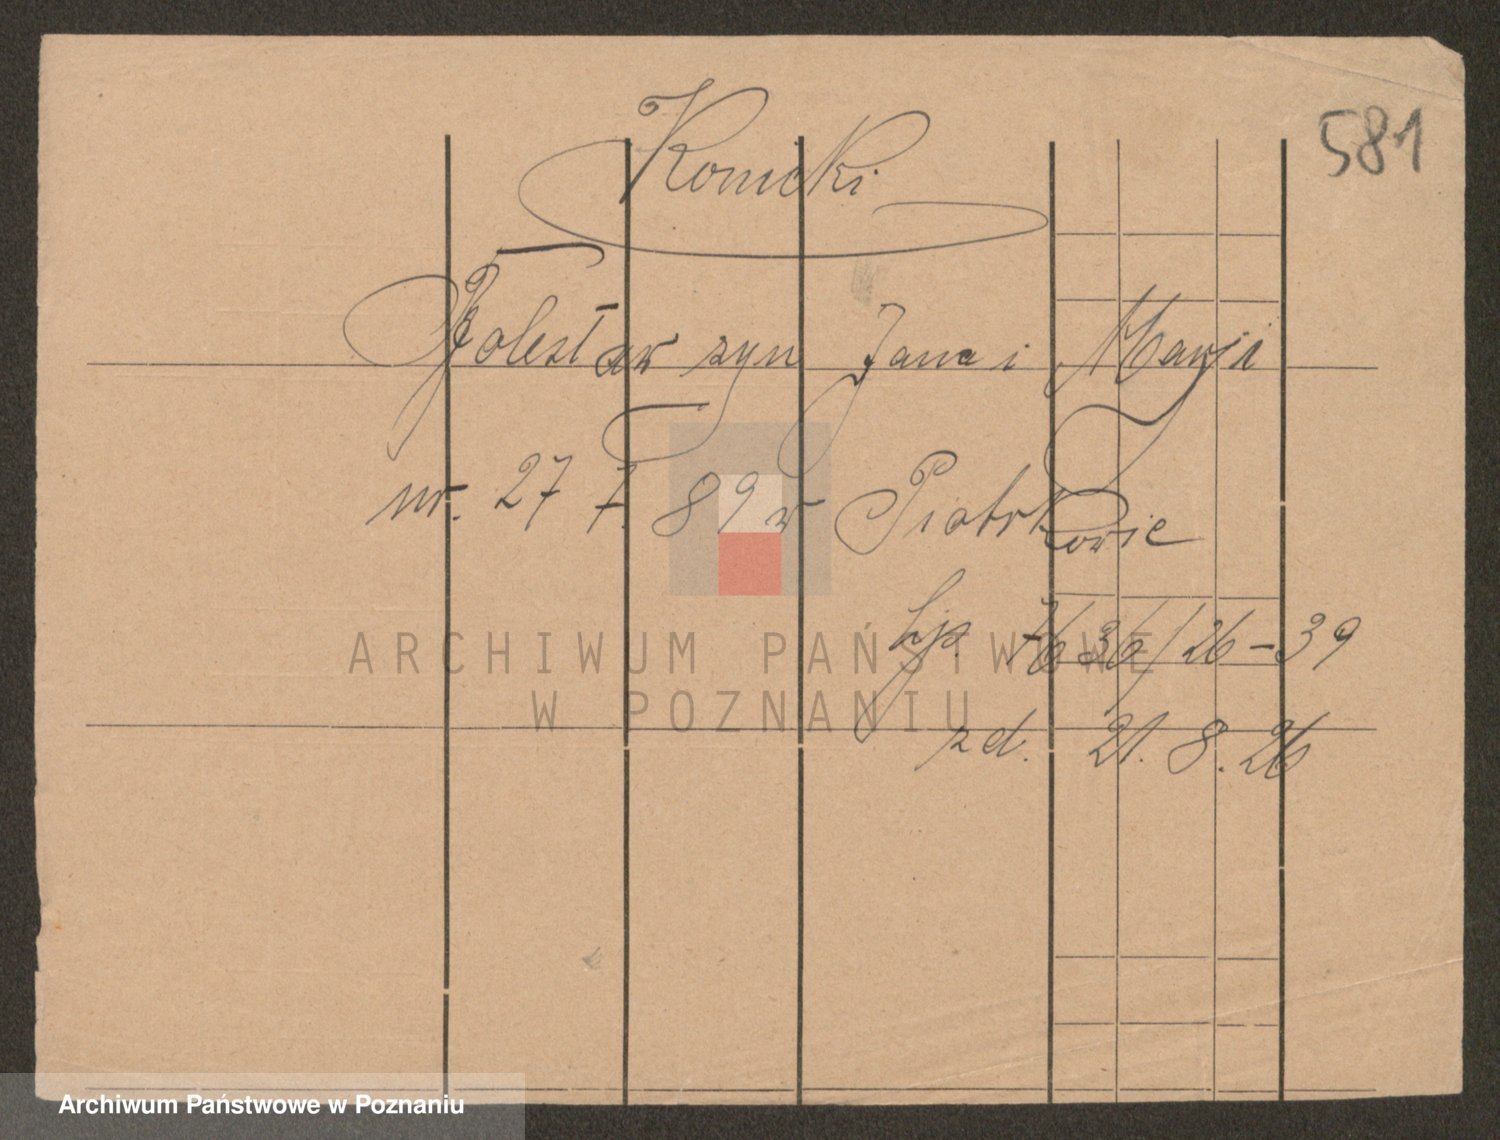 581
Konicki
Bolesław syn Jana i Marji
ur. 27 7. 89 w Piotrkowie
lp. 7636/26-39
zd. 21. 8. 26
ARCHIWUM PAŃSTWOWE
W POZNANIU
Archiwum Państwowe w Poznaniu